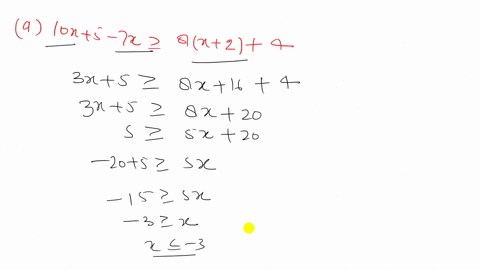 (a) 10x+5-7x ≥ 8(x+2)+4
3x+5 ≥ 8x+16+4
3x+5 ≥ 8x+20
5 ≥ 5x+20
-20+5 ≥ 5x
-15 ≥ 5x
-3 ≥ x
x ≤ -3